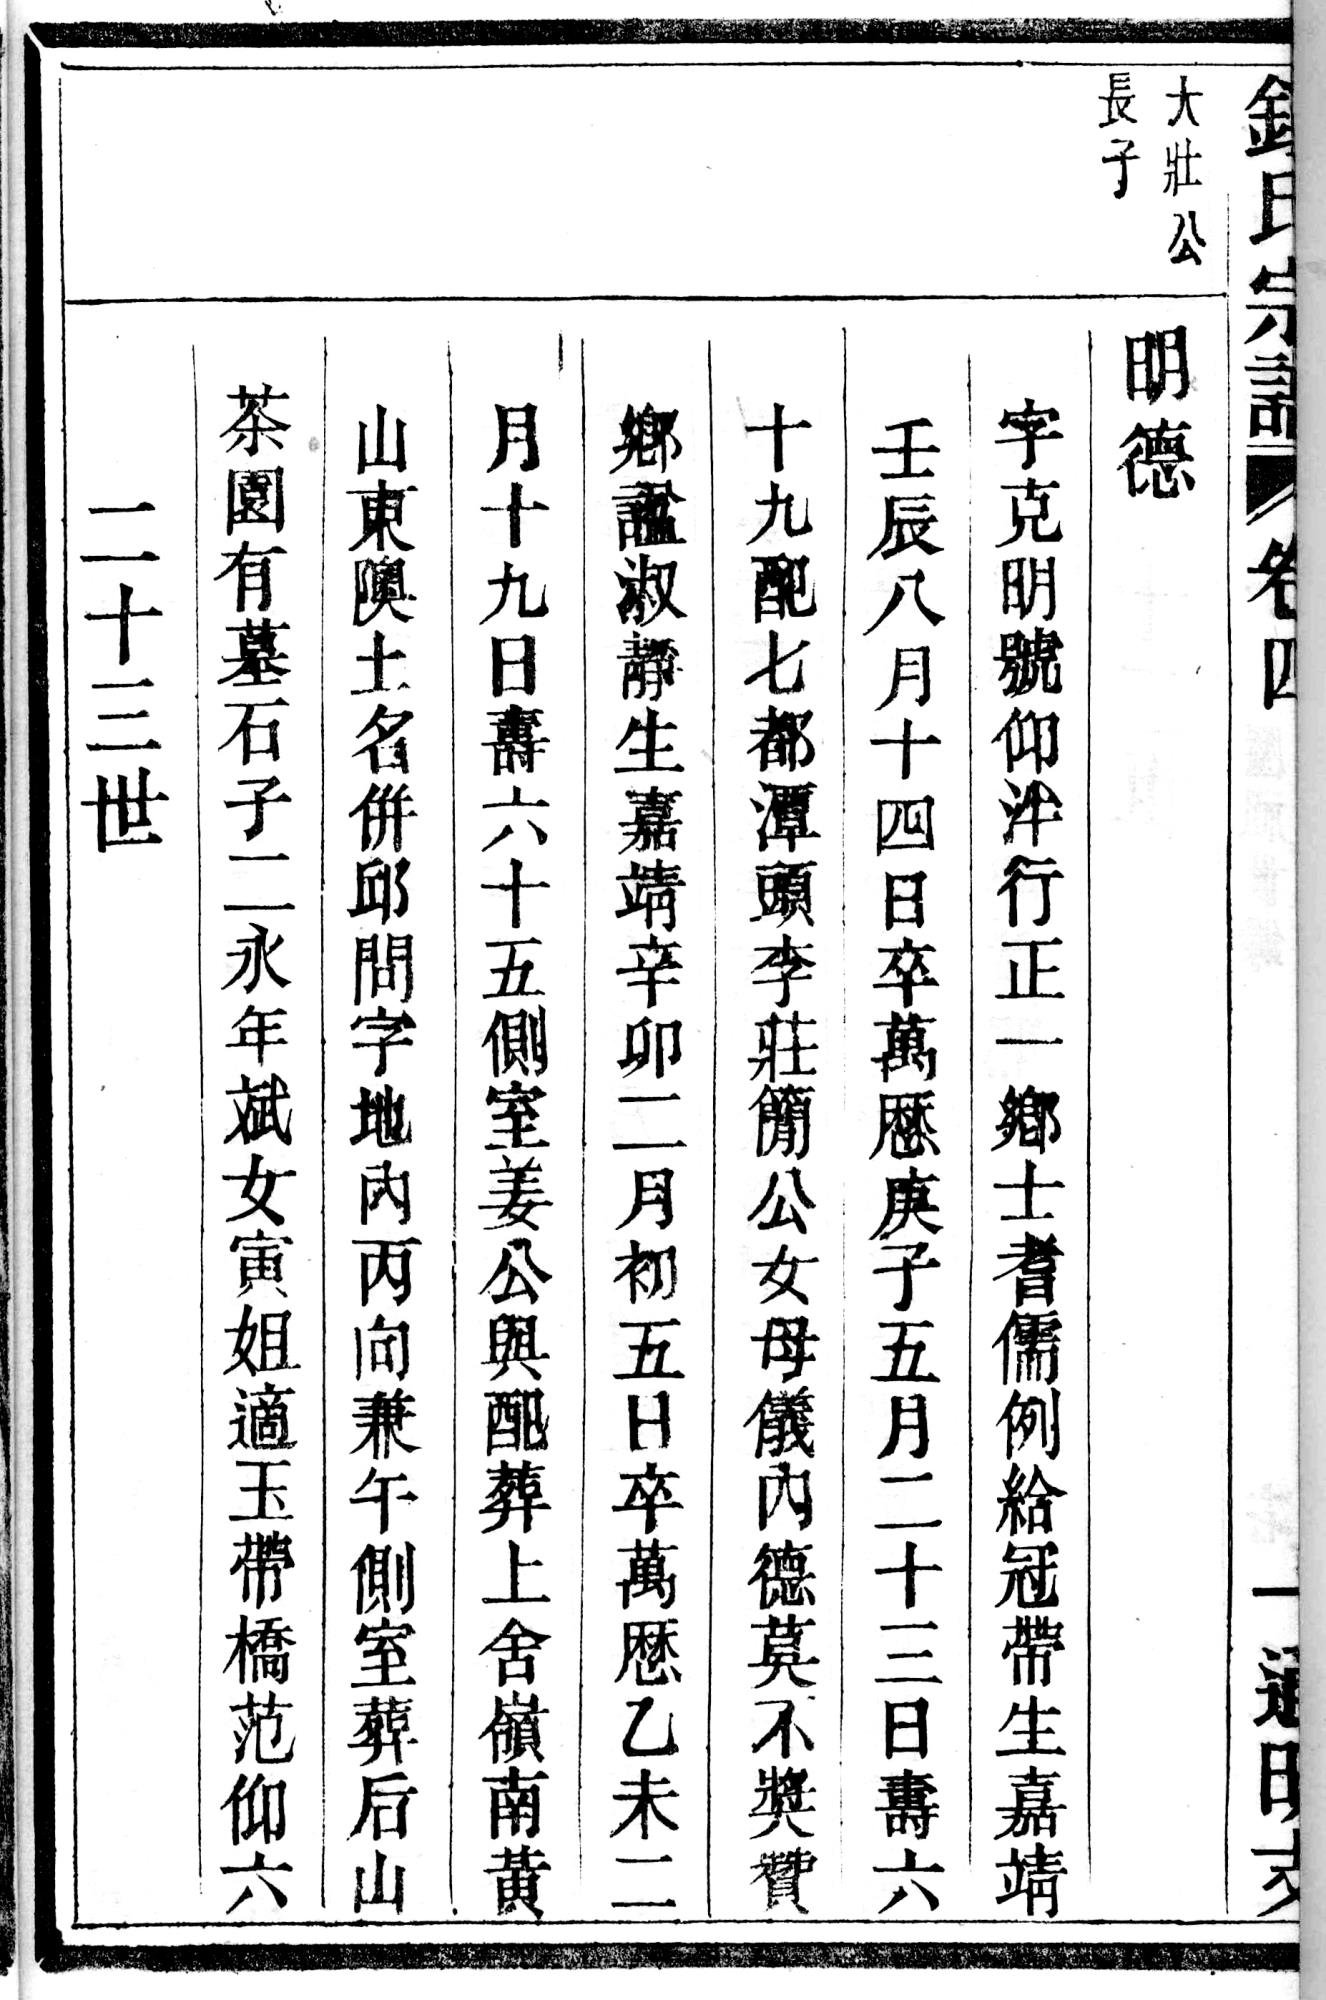 氏宗譜 卷四 一 通明支
大壯公
長子
明德
字克明號仰泮行正一鄉士耆儒例給冠帶生嘉靖
壬辰八月十四日卒萬厯庚子五月二十三日壽六
十九配七都潭頭李莊簡公女母儀內德莫不奬贊
鄉謚淑靜生嘉靖辛卯二月初五日卒萬厯乙未二
月十九日壽六十五側室姜公與配葬上舍嶺南黃
山東隩土名併邱問字地內丙向兼午側室葬后山
茶園有墓石子二永年斌女寅姐適玉帶橋范仰六
二十三世